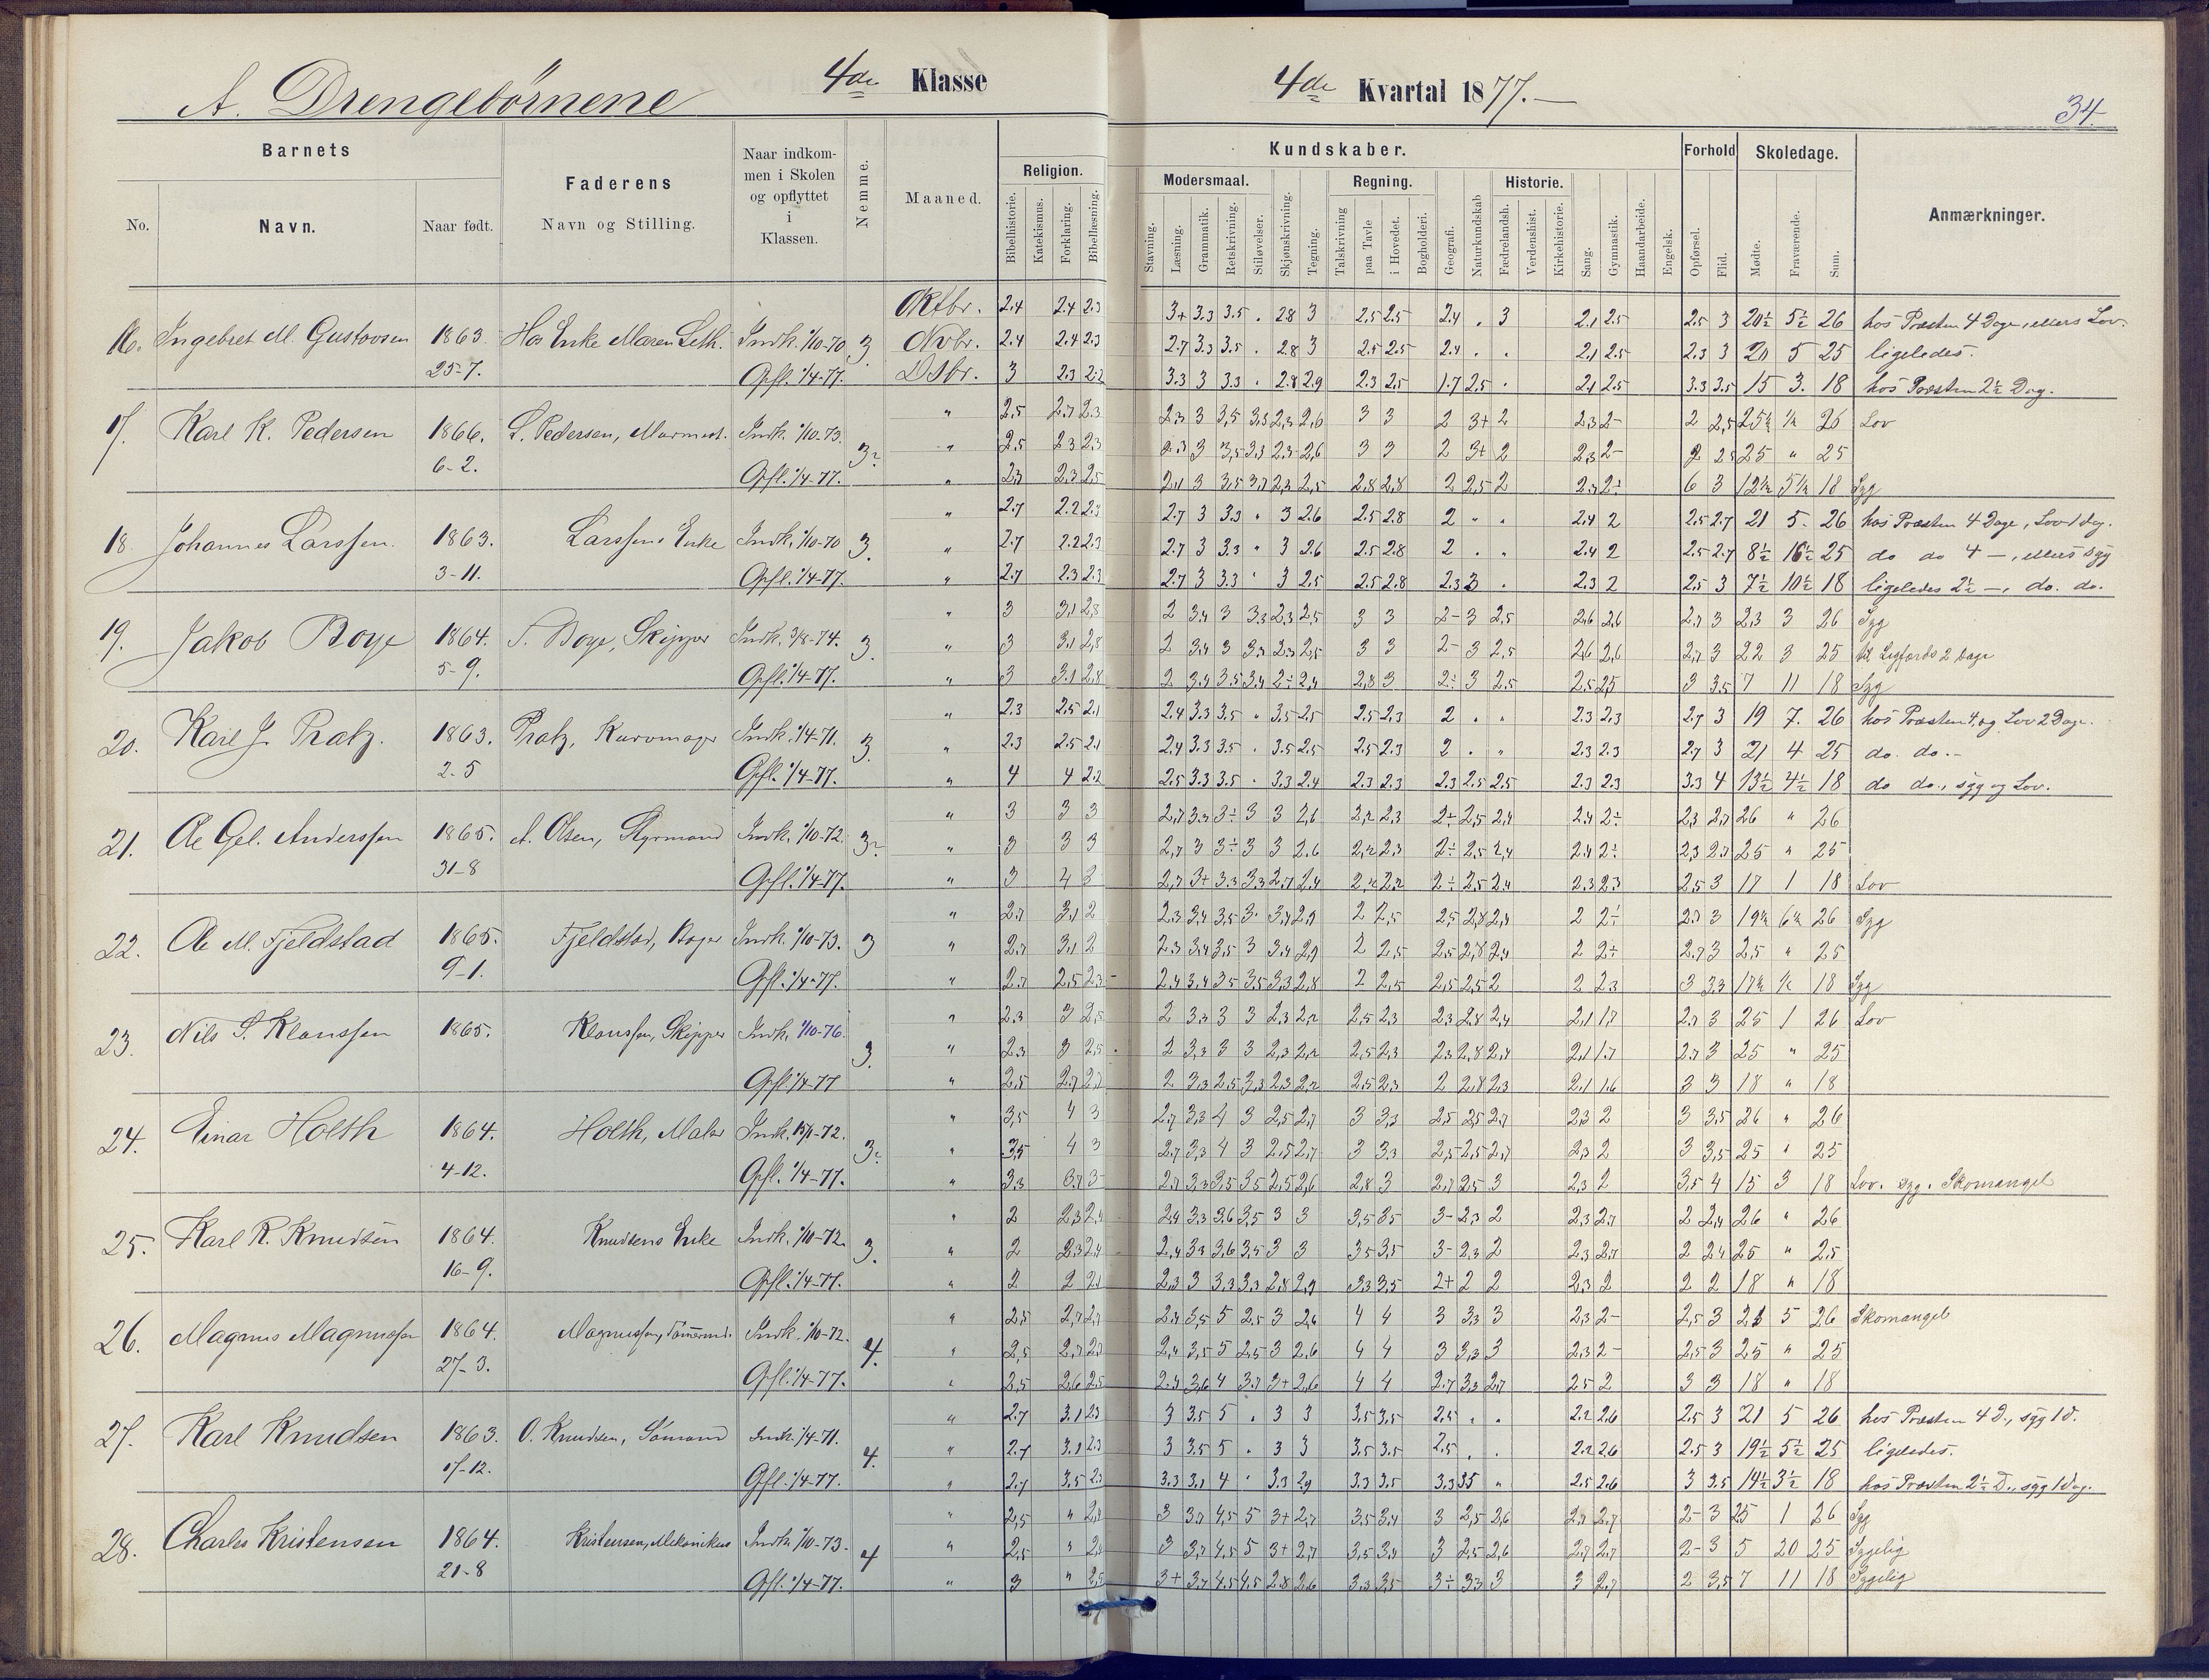 A. Drengebørnene 4de Klasse 4de Kvartal 1877.—
34.
Barnets
No. Navn. Naar født.
Faderens
Navn og Stilling.
Naar indkom-
men i Skolen
og opflyttet
i
Klassen.
Nemme.
Maaned.
Religion.
Bibelhistorie. Katekismus. Forklaring. Bibellæsning.
Kundskaber.
Modersmaal. Regning. Historie.
Stavning. Læsning. Grammatik. Retskrivning. Stiløvelser. Skjønskrivning. Tegning. Talskrivning paa Tavle i Hovedet. Bogholderi. Geografi. Naturkundskab Fædrelandsh. Verdenshist. Kirkehistorie. Sang. Gymnastik. Haandarbeide. Engelsk.
Forhold
Opførsel. Flid.
Skoledage.
Mødte. Fraværende. Sum.
Anmærkninger.
Oktbr. 2.4 2.4 2.3 3+ 3.3 3.5 . 2.8 3 2.5 2.5 2.4 . 3 2.1 2.5 2.5 3 20½ 5½ 26 hos Præsten 4 Dage, ellers Lov.
16. Ingebret M. Gustavsen 1863. Hos Enke Maren Leth. Indk. 1/10-70 3 Novbr. 2.4 2.4 2.3 2.7 3.3 3.5 . 2.8 3 2.5 2.5 2.4 . . 2.1 2.5 2.3 3 20 5 25 ligeledes.
25-7. Opfl. 1/4-77. Dsbr. 3 2.3 2.2 3.3 3 3.3 . 2.8 2.9 2.3 2.5 1.7 2.5 . 2.1 2.5 3.3 3.5 15 3. 18 hos Præsten 2½ Dag.
" 2,5 2.7 2.3 2,3 3 3,5 3,3 2,3 2,6 3 3 2 3+ 2 2,3 2- 2 2,5 25½ ½ 26 Lov
17. Karl K. Pedersen 1866. L. Pedersen, Murmest. Indk. 1/10-73. " 2,5 2.3 2,3 2.3 3 3,5 3,3 2,3 2,6 3 3 2 3+ 2 2,3 2- 2 2,5 25 " 25
6-2. Opfl. 1/4-77. " 2,3 2,3 2,5 2,1 3 3,5 3,7 2,3 2,5 2,8 2,8 2 2,5 2 6 3 12½ 5½ 18 Syg
" 2.7 2.2 2.3 2.7 3 3.3 " 3 2.6 2.5 2.8 2 " " 2.4 2 2.5 2.7 21 5- 26 hos Præsten 4 Dage, Lov 1 dag.
18. Johannes Larssen. 1863. Larssens Enke Indk. 1/10-70 3. " 2.7 2.2 2.3 2.7 3 3.3 " 3 2.6 2.5 2.8 2 . " 2.4 2 2.5 2.7 8½ 16½ 25 do do 4 —, ellers syg
3-11. Opfl. 1/4-77. " 2.7 2.3 2.3 2.7 3 3.3 " 3 2.5 2.5 2.8 2.3 3 . 2.3 2 2.5 3 7½ 10½ 18 ligeledes 2½ —, do. do.
" 3 3,1 2,8 2 3,4 3 3,3 2,3 2,5 3 3 2- 3 2,5 2,6 2,6 2,7 3 23 3 26 Syg
19. Jakob Boye 1864. T. Boye, Skipper Indk. 3/8-74. 3. " 3 3,1 2,8 2 3,4 3 3,3 2,3 2,5 3 3 2- 3 2,5 2,6 2,6 2,7 3 22 3 25 til Ligfærds 2 Dage
5-9. Opfl. 1/4-77. " 3 3.1 2,8 2 3,4 3,5 3,4 2÷ 2,4 2,8 3 2÷ 3 2,5 2,5 2,5 3 3,5 7 11 18 Syg
" 2.3 2.5 2.1 2.4 3.3 3.5 " 3.5 2.5 2.5 2.3 2 . " 2.3 2.3 2.7 3 19 7. 26 hos Præsten 4, og Lov 2 Dage.
20. Karl J. Pratz. 1863. Pratz, Kurvmager Indk. 1/4-71. 3. " 2.3 2.5 2.1 2.4 3.3 3.5 . 3.5 2.5 2.5 2.3 2 . " 2.3 2.3 2.7 3 21 4 25 do. do.-
2-5 Opfl. 1/4-77. " 4 4 2.2 2.5 3.3 3.5 . 3.3 2.4 2.3 2.3 2.3 2.5 2.5 2.3 2.3 3.3 4 13½ 4½ 18 do do., syg og Lov.
" 3 3 3 2,7 3,3 3÷ 3 3 2,6 2,2 2,3 2÷ 2,5 2,4 2,4 2÷ 2,3 2,7 26 " 26
21. Ole Gel. Anderssen 1865. A. Olsen, Styrmand Indk. 1/10-72. " 3 3 3 2,7 3 3÷ 3 3 2,6 2,2 2,3 2÷ 2,5 2,4 2,4 2÷ 2,3 2,7 25 " 25
31-8 Opfl. 1/4-77. " 3 4 3 2,7 3+ 3.3 3,3 2,7 2,4 2,2 2,2 2÷ 2,5 2,4 2,3 2,3 2,5 3 17 1 18 Lov
" 2.7 3,1 2 2,3 3,4 3,5 3. 3,4 2,9 2 2,5 2,5 2,8 2,4 2 2÷ 2,7 3 19½ 6½ 26 Syg
22. Ole M. Fjeldstad 1865. Fjeldstad, Bager Indk. 1/10-73. 3 " 2.7 3,1 2 2.3 3,4 3,5 3 3,4 2,9 2 2,5 2,5 2,8 2,4 2 2÷ 2,7 3 25 " 25
9-1. Opfl. 1/4-77. " 2.7 2,5 2,3 2,4 3,4 3,5 3,5 3,3 2,8 2 2,5 2,5 2,5 2 2 2,3 3 3,3 17½ ½ 18 Syg
" 2,3 3 2,5 2 3,3 3 3 2,3 2,2 2,5 2,3 2,3 2,8 2,4 2,1 1,7 2,7 3 25 1 26 Lov
23. Nils S. Klaussen 1865. Klaussen, Skipper Indk. 1/10-76. 3. " 2.3 3 2,5 2 3,3 3 3 2,3 2,2 2,5 2,3 2,3 2,8 2,4 2,1 1,7 2,7 3 25 " 25
Opfl. 1/4-77 " 2,5 2,7 2,7 2 3,3 2,5 3,3 2,3 2,2 2,5 2,3 2 2,8 2,3 2,1 1,6 3 3 18 " 18
" 3,5 4 3 2,7 3,3 4 3 2,5 2,7 3 3,3 2,5 2,5 2,7 2,3 2 3 3,5 26 " 26
24. Einar Holth 1864. Holth, Maler Indk. 15/1-72. " 3,5 4 3 2,7 3,3 4 3 2,5 2,7 3 3,3 2,5 2,5 2,7 2,3 2 3 3,5 25 " 25
4-12. Opfl. 1/4-77. " 3,3 3,7 3 2,7 3,3 3,5 3,5 2,5 2,6 2,8 3 2,7 2,5 3 2,3 2 3,5 4 15 3 18 Lov. syg. Skomangel
" 2 2,3 2,4 2,4 3,3 3,6 3,5 3 3 3,5 3,5 3- 2,3 2 2,3 2,7 2 2,4 26 " 26
25. Karl R. Knudsen 1864. Knudsens Enke Indk. 1/10-72. 3. " 2 2,3 2,4 2,4 3,3 3,6 3,5 3 3 3,5 3,5 3- 2,3 2 2,3 2,7 2 2,4 25 " 25
16-9. Opfl. 1/4-77. " 2 2 2,1 2,3 3 3,3 3,3 2,8 2,9 3,3 3,5 2+ 2 2 2,3 2 2 2 18 " 18
" 2,5 2,7 2,7 2,4 3,5 5 2,5 3 2,6 4 4 3 3,3 3 2,3 2- 2,5 3 21 5 26 Skomangel
26. Magnus Magnussen 1864. Magnussen, Tømermd. Indk. 1/10-72. 4. " 2,5 2,7 2,7 2,4 3,5 5 2,5 3 2,6 4 4 3 3,3 3 2,3 2- 2,5 3 25 " 25
27-3. Opfl. 1/4-77. " 2,5 2,6 2,5 2,4 3,6 4 3,7 3+ 2,6 4 4 2,7 3,3 2,7 2,5 2 3 3 18 " 18
" 2.7 3.1 2.3 3 3.5 5 . 3 3 3.5 3.5 2.5 . . 2.2 2.6 2.5 3 21 5 26 hos Præsten 4 D., syg 1 d.
27. Karl Knudsen 1863. O. Knudsen, Sømand Indk. 1/4-71. 4. " 2.7 3.1 2.3 3 3.5 5 . 3 3 3.5 3.5 2.5 . . 2.2 2.6 2.5 3 19½ 5½ 25 ligeledes.
17-12. Opfl. 1/4-77. " 2.7 3.5 2.3 3.3 3.1 4 . 3.3 2.9 3.3 3.5 3.3 3.5 " 2.5 2.6 3 3.5 14½ 3½ 18 hos Præsten 2½ D., syg 1 Dag.
" 2,5 " 2,4 3 3,7 4,5 5 3+ 2,7 3,5 3,4 3 2,5 2,6 2,7 2,7 2- 3 25 1 26 Syg
28. Charles Kristensen 1864. Kristensen, Mekanikus Indk. 1/10-73. 4 " 2,5 " 3 3,7 4,5 5 3+ 2,7 3,5 3,4 3 2,5 2,6 2,7 2,7 2- 3 5 20 25 Sygelig
21-8 Opfl. 1/4-77. " 3 " 2,5 3+ 3,7 4,5 4,5 2,8 2,6 3,3 3,5 3÷ 3,3 3 3 2,7 2 3,5 7 11 18 Sygelig